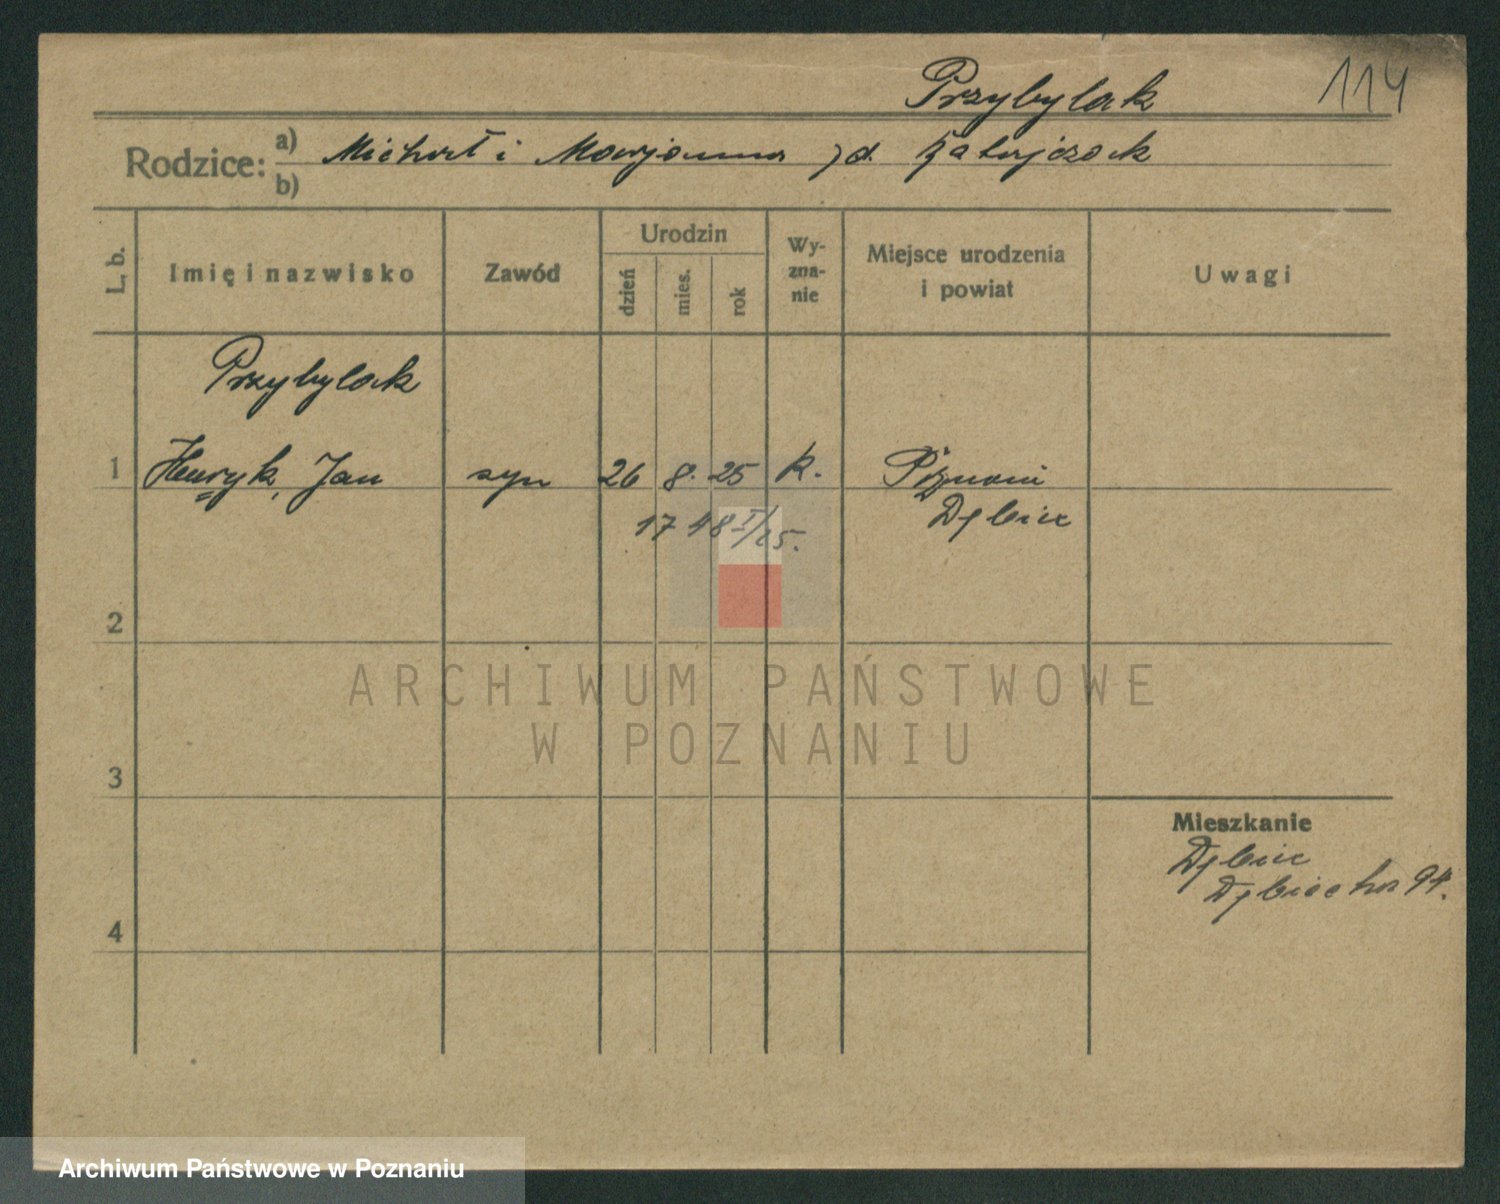 Przybylak 114
Rodzice: a) Michał i Marjanna
b)
L. b. Imię i nazwisko Zawód Urodzin dzień mies. rok Wyznanie Miejsce urodzenia i powiat Uwagi
Przybylak
1 Henryk, Jan syn 26 8. 25 k. Poznań
Dębiec
17 48 I/25.
2
ARCHIWUM PAŃSTWOWE
W POZNANIU
3
Mieszkanie
Dębiec
94.
4
Archiwum Państwowe w Poznaniu